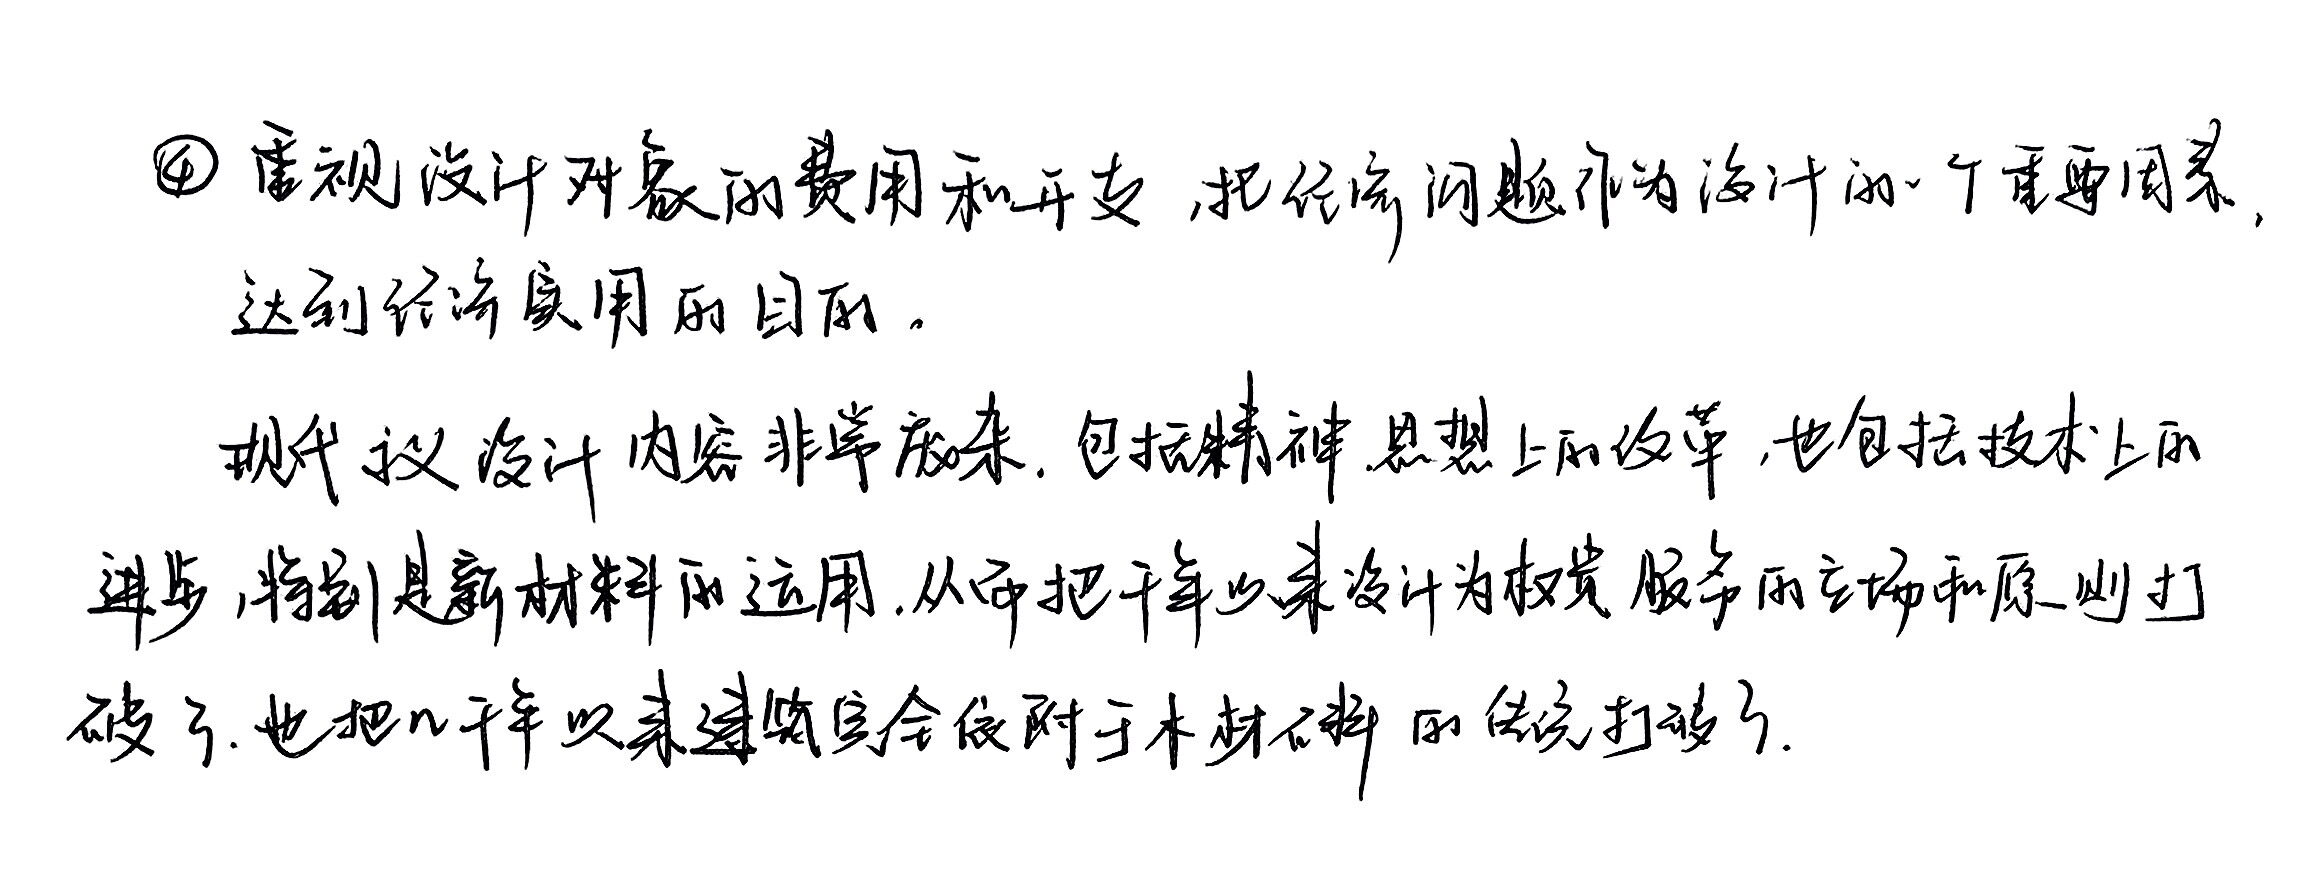 ④ 重视设计对象的费用和开支,把经济问题作为设计的一个重要因素,
达到经济实用的目的。
现代主义设计内容非常庞杂.包括精神.思想上的改革,也包括技术上的
进步,特别是新材料的运用.从而把千年以来设计为权贵服务的立场和原则打
破了.也把几千年以来建筑完全依附于木材石料的传统打破了.